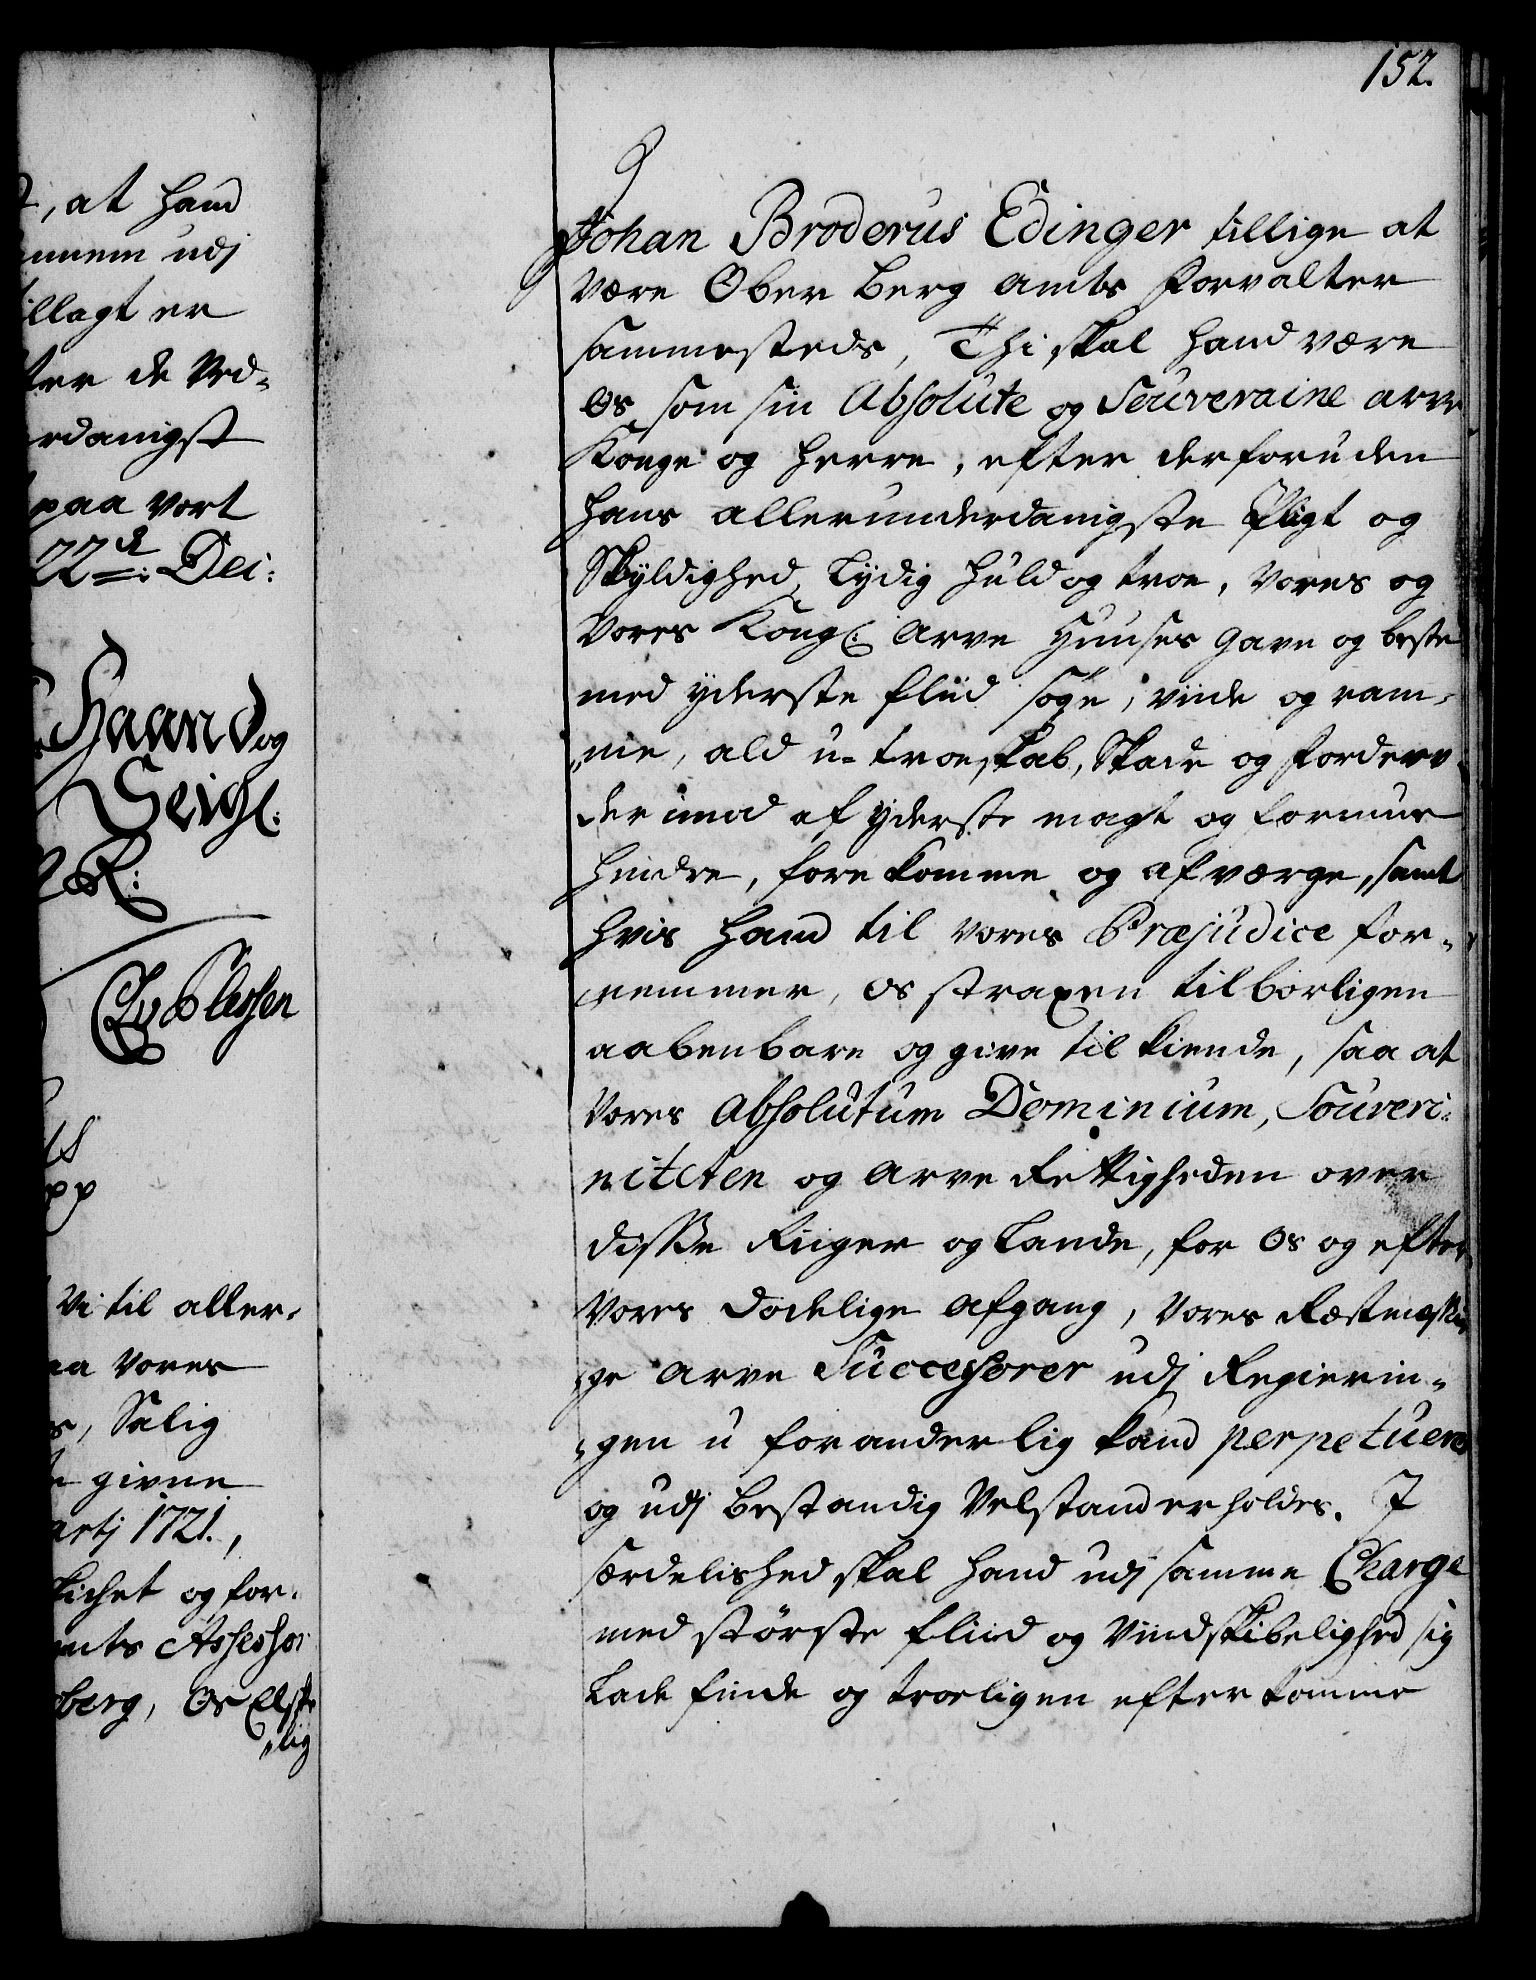 152.
, at hand
ennem udj
illagt er
ter de Ved-
rdanigst
paa vort
22d: Dec:
Haand og
Seigl:
R:
CAvPlessen
Vi til aller-
aa vores
s, Salig
givne
artj 1721.,
kichet og for-
mts Assessor
berg, Os Elske
„lig
Johan Broderus Edinger tillige at
være Ober Berg Amts Forvalter
sammesteds, Thi skal hand være
Os som sin Absolute og Souveraine arve
Konge og Herre, efter derforuden
hans allerunderdanigste Pligt og
Skyldighed, Lydig huld og troe, vores og
Vores Kongl: Arve Huuses gavn og beste
med yderste fliid søge, viide og ram-
„me, ald u-troeskab, Skade og fordærv
der imod af yderste magt og formue
hindre, forekomme og afværge, samt
hvis hand til vores Præjudice for-
nemmer, os straxen tilbørligen
aabenbare og give tilkiende, saa at
Vores Absolutum Dominium, Souveri-
niteten og Arve Rettigheden over
disse Riiger og Lande, for Os og efter
Vores dødelige afgang, vores Rætmæssi
ge Arve Successorer udj Regierin-
„gen uforanderlig kand perpetueres
og udj bestandig Velstand erholdes. I
særdelished skal hand udj samme Charge
med største fliid og Vindskibelighed sig
Lade finde og troeligen efterkomme